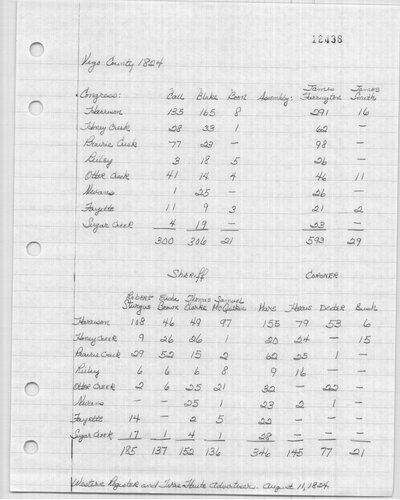 12438
Vigo County 1824
Congress: Call Blake Boon Assembly: James Farrington James Smith
Harrison 135 165 8 291 16
Honey Creek 28 33 1 62 —
Prairie Creek 77 23 — 98 —
Riley 3 18 5 26 —
Otter Creek 41 14 4 46 11
Nevans 1 25 — 26 —
Fayette 11 9 3 21 2
Sugar Creek 4 19 — 23 —
300 306 21 593 29
Sheriff CORONER
Robert Sturgus Brown Thomas Clarke Samuel Harris Dexter
Harrison 108 46 49 97 155 79 53 6
Honey Creek 9 26 26 1 20 24 — 15
Prairie Creek 29 52 15 2 62 25 1 —
Riley 6 6 6 8 9 16 —
Otter Creek 2 6 25 21 32 — 22 —
Nevans — — 25 1 23 2 1 —
Fayette 14 — 2 5 22 — —
Sugar Creek 17 1 4 1 28 — —
185 137 152 136 346 145 77 21
Western Register and Terre Haute Advertiser. August 11, 1824